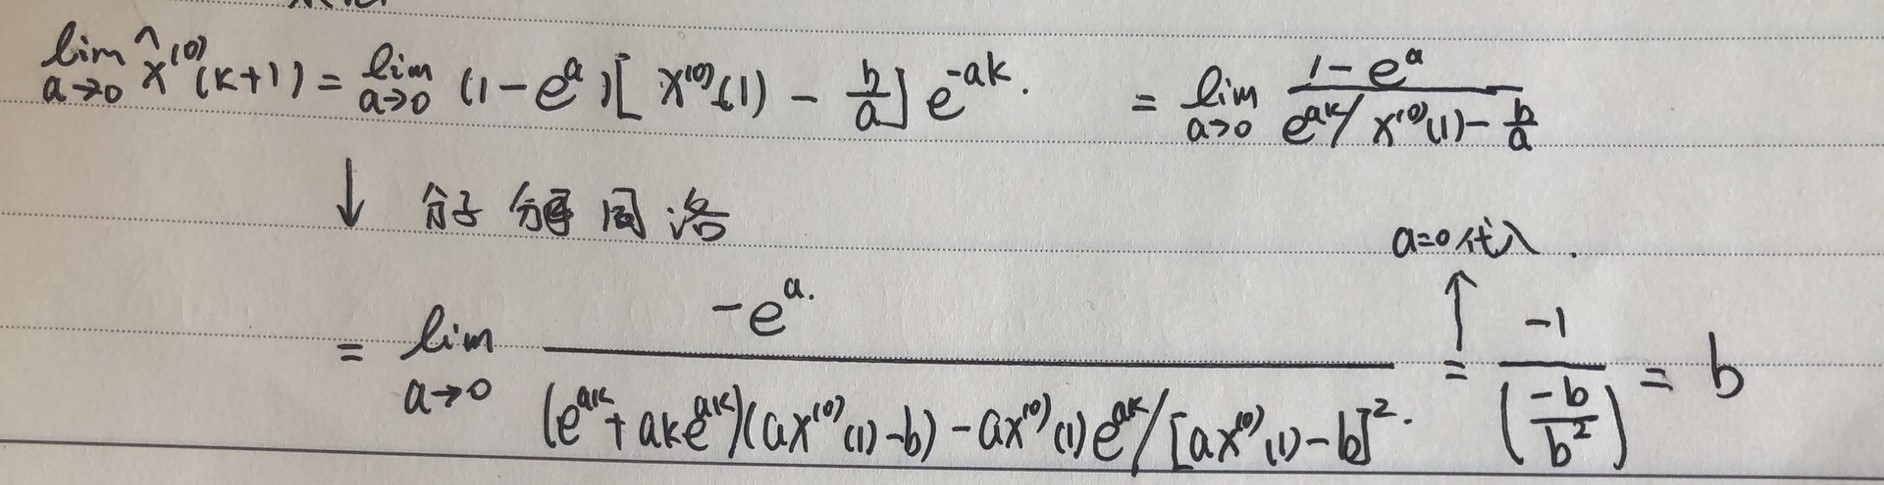 lim_{a→0} x̂^{(0)}(k+1) = lim_{a→0} (1-e^a)[x^{(0)}(1) - b/a] e^{-ak}. = lim_{a→0} (1-e^a)/(e^{ak}/x^{(0)}(1) - b/a)
↓ 分子 分母 同 洛
a=0代入.
= lim_{a→0} (-e^a.)/((e^{ak}+ake^{ak})(ax^{(0)}(1)-b)-ax^{(0)}(1)e^{ak}/[ax^{(0)}(1)-b]^2.) = -1/(-b/b^2) = b